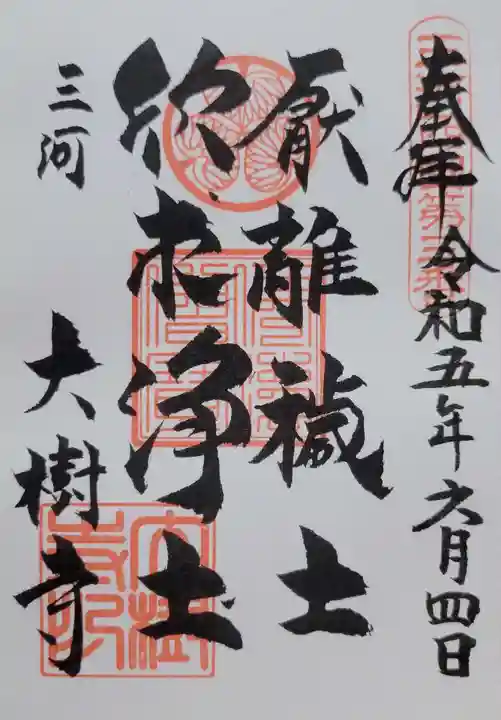 奉拝 令和五年六月四日
厭離穢土
欣求浄土
三河 大樹寺